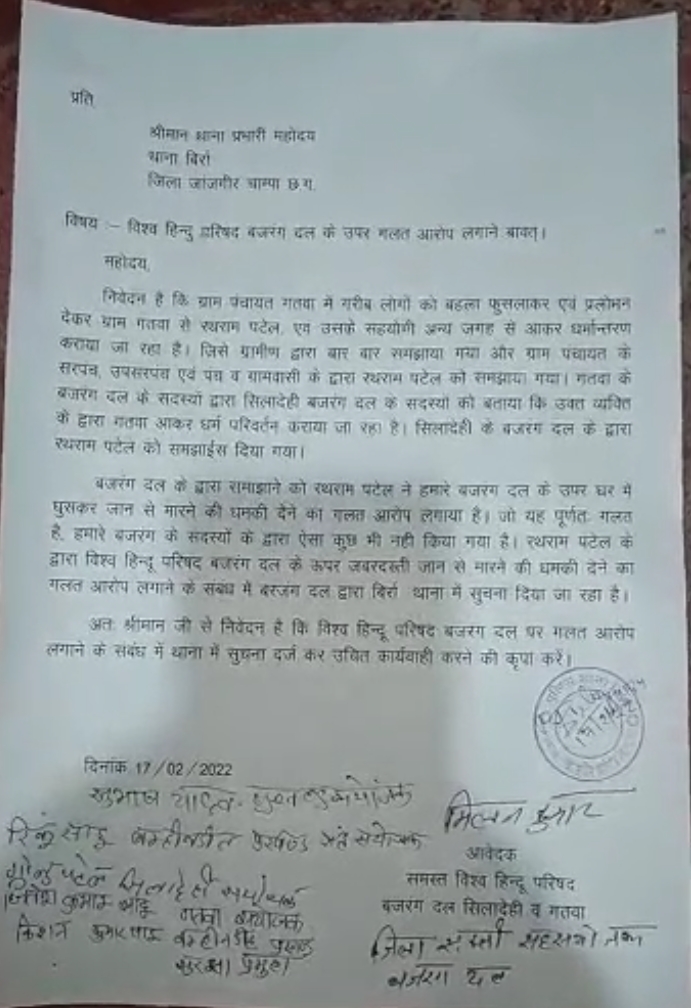 प्रति,
श्रीमान थाना प्रभारी महोदय
थाना बिर्रा
जिला जांजगीर चाम्पा छ.ग.
विषय :– विश्व हिन्दु परिषद बजरंग दल के उपर गलत आरोप लगाने बावत्।
महोदय,
निवेदन है कि ग्राम पंचायत गतवा में गरीब लोगों को बहला फुसलाकर एवं प्रलोभन
देकर ग्राम गतवा से रथराम पटेल, एव उसके सहयोगी अन्य जगह से आकर धर्मान्तरण
कराया जा रहा है। जिसे ग्रामीण द्वारा बार बार समझाया गया और ग्राम पंचायत के
सरपंच, उपसरपंच एवं पंच व ग्रामवासी के द्वारा रथराम पटेल को समझाया गया। गतवा के
बजरंग दल के सदस्यों द्वारा सिलादेही बजरंग दल के सदस्यों को बताया कि उक्त व्यक्ति
के द्वारा गतवा आकर धर्म परिवर्तन कराया जा रहा है। सिलादेही के बजरंग दल के द्वारा
रथराम पटेल को समझाईस दिया गया।
बजरंग दल के द्वारा समाझाने को रथराम पटेल ने हमारे बजरंग दल के उपर घर में
घुसकर जान से मारने की धमकी देने का गलत आरोप लगाया है। जो यह पूर्णतः गलत
है, हमारे बजरंग के सदस्यों के द्वारा ऐसा कुछ भी नही किया गया है। रथराम पटेल के
द्वारा विश्व हिन्दू परिषद बजरंग दल के ऊपर जबरदस्ती जान से मारने की धमकी देने का
गलत आरोप लगाने के संबंध में बरजंग दल द्वारा बिर्रा थाना में सुचना दिया जा रहा है।
अतः श्रीमान जी से निवेदन है कि विश्व हिन्दू परिषद बजरंग दल पर गलत आरोप
लगाने के संबंध में थाना में सुचना दर्ज कर उचित कार्यवाही करने की कृपा करें।
दिनांक 17/02/2022
सुभाष यादव
मिलन कुमार
रिंकु साहु बम्हनीडीह प्रखण्ड सह संयोजक
आवेदक
गोलु पटेल सिलादेही संयोजक
समस्त विश्व हिन्दू परिषद
कुमार साहु गतवा संयोजक
बजरंग दल सिलादेही व गतवा
किशन कुमार बम्हनीडीह प्रखण्ड
सुरक्षा प्रमुख
जिला सक्ती सहसंयोजक
बजरंग दल